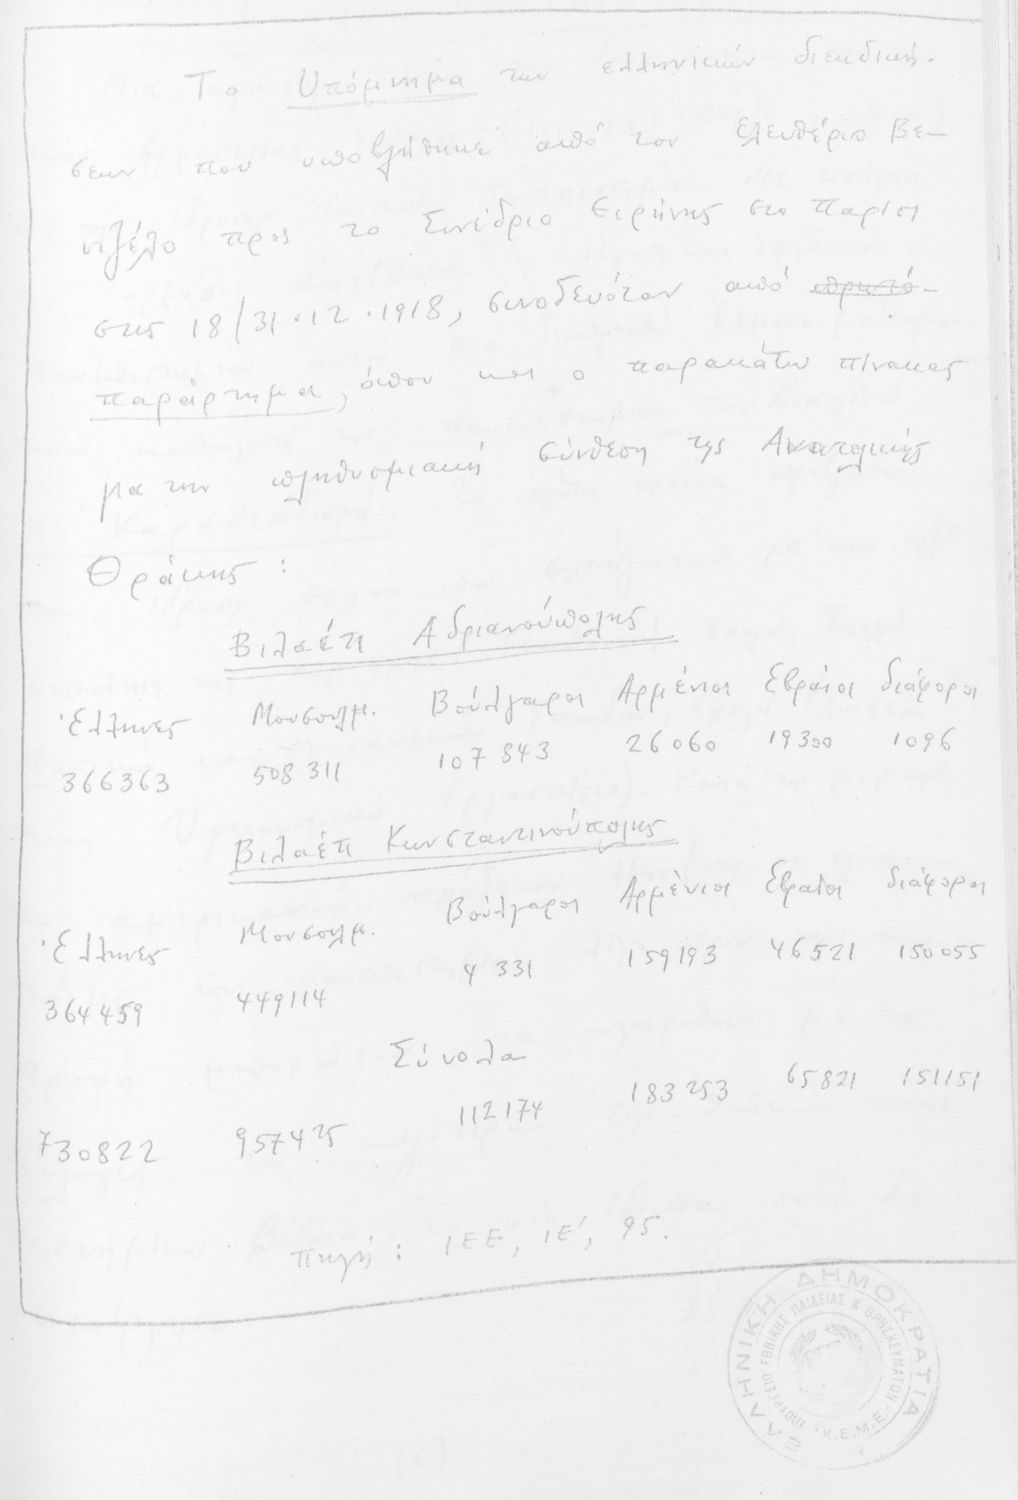 Το Υπόμνημα των ελληνικών διεκδική-
σεων που υποβλήθηκε από τον Ελευθέριο Βε-
νιζέλο προς το Συνέδριο Ειρήνης στο Παρίσι
στις 18/31.12.1918, συνοδευόταν από
παράρτημα, όπου και ο παρακάτω πίνακας
για την πληθυσμιακή σύνθεση της Ανατολικής
Θράκης:
Βιλαέτι Αδριανούπολης
Έλληνες Μουσουλμ. Βούλγαροι Αρμένιοι Εβραίοι διάφοροι
366363 508311 107843 26060 19300 1096
Βιλαέτι Κωνσταντινούπολης
Έλληνες Μουσουλμ. Βούλγαροι Αρμένιοι Εβραίοι διάφοροι
364459 449114 4331 159193 46521 150055
Σύνολα
730822 957425 112174 183253 65821 151151
πηγή: ΙΕΕ, ΙΕ', 95.
ΕΛΛΗΝΙΚΗ ΔΗΜΟΚΡΑΤΙΑ
ΥΠΟΥΡΓΕΙΟ ΕΘΝΙΚΗΣ ΠΑΙΔΕΙΑΣ & ΘΡΗΣΚΕΥΜΑΤΩΝ
Κ.Ε.Μ.Ε.